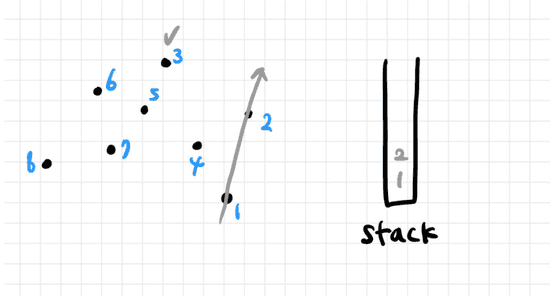 3
6
5
2
7
8
4
1
2
1
stack